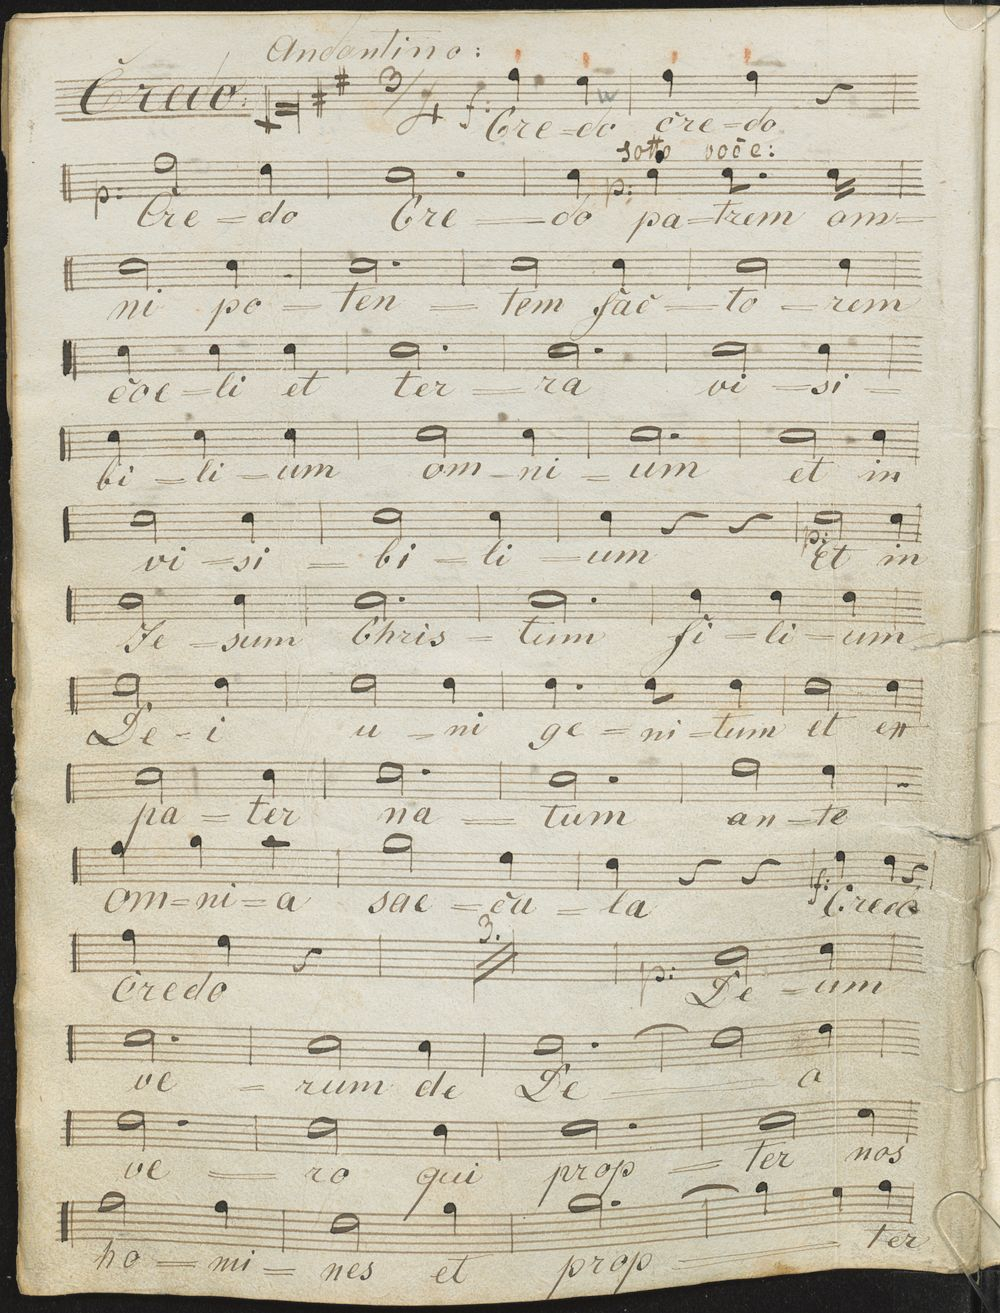 Andantino:
Credo: 3/4 f:
Cre=do cre=do
sotto voce:
p: p:
Cre=do Cre=do pa=trem om=
ni po=ten=tem fac=to=rem
coe=li et ter=ra vi=si=
bi=li=um om=ni=um et in
p:
vi=si=bi=li=um Et in
Je=sum Chris=tum fi=li=um
De=i u=ni ge=ni=tum et ex
pa=ter na=tum an=te
f:
om=ni=a sae=cu=la Credo
3.
p:
Credo De=um
ve=rum de De=o
ve=ro qui prop=ter nos
ho=mi=nes et prop=ter